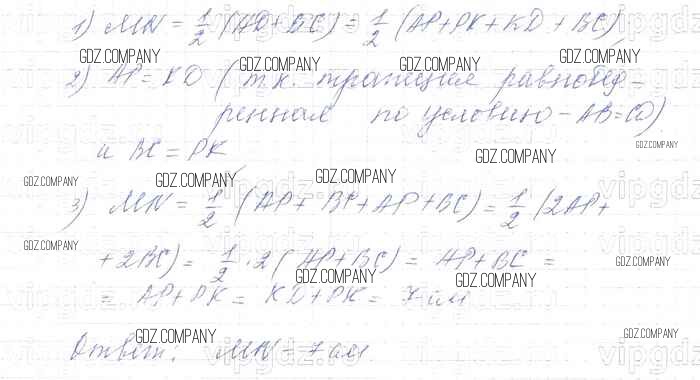 1) MN = 1/2 (AD + BC) = 1/2 (AP + PK + KD + BC)
GDZ.COMPANY GDZ.COMPANY GDZ.COMPANY GDZ.COMPANY
2) AP = KD (т.к. трапеция равнобед-
ренная по условию - AB = CD)
GDZ.COMPANY
и BC = PK
GDZ.COMPANY
GDZ.COMPANY GDZ.COMPANY GDZ.COMPANY
3) MN = 1/2 (AP + BP + AP + BC) = 1/2 (2AP +
GDZ.COMPANY
+ 2BC) = 1/2 · 2 (AP + BC) = AP + BC =
GDZ.COMPANY GDZ.COMPANY GDZ.COMPANY
= AP + PK = KD + PK = 7 см
GDZ.COMPANY GDZ.COMPANY
Ответ: MN = 7 см